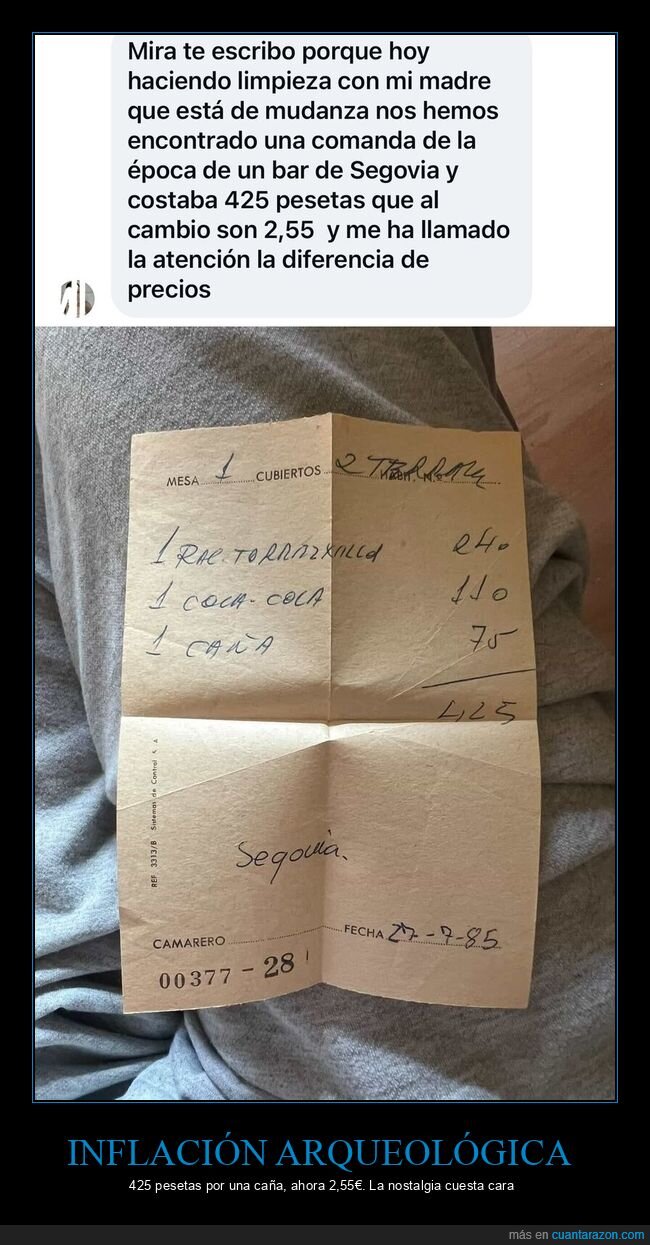 Mira te escribo porque hoy
haciendo limpieza con mi madre
que está de mudanza nos hemos
encontrado una comanda de la
época de un bar de Segovia y
costaba 425 pesetas que al
cambio son 2,55 y me ha llamado
la atención la diferencia de
precios
MESA 1 CUBIERTOS 2
1 240
1 COCA-COLA 110
1 CAÑA 75
425
REF. 3313/B Sistemas de Control
Segovia.
CAMARERO FECHA 27-7-85
00377-28
INFLACIÓN ARQUEOLÓGICA
425 pesetas por una caña, ahora 2,55€. La nostalgia cuesta cara
más en cuantarazon.com